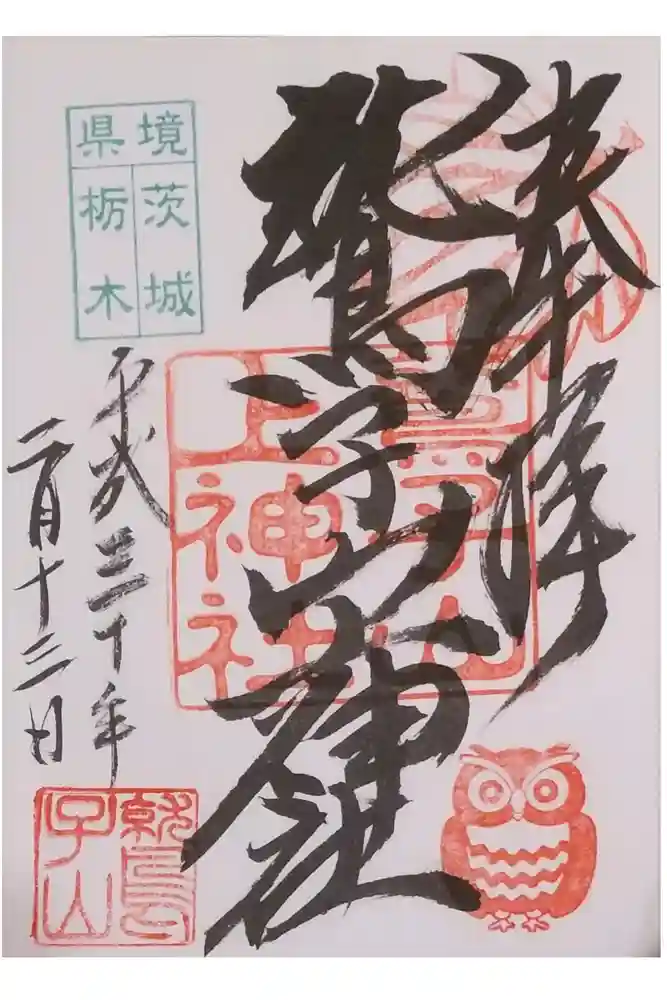 奉拝
鷲子山神社
鷲子山
上神社
県境
茨城
栃木
平成三十年
二月十三日
鷲
子山